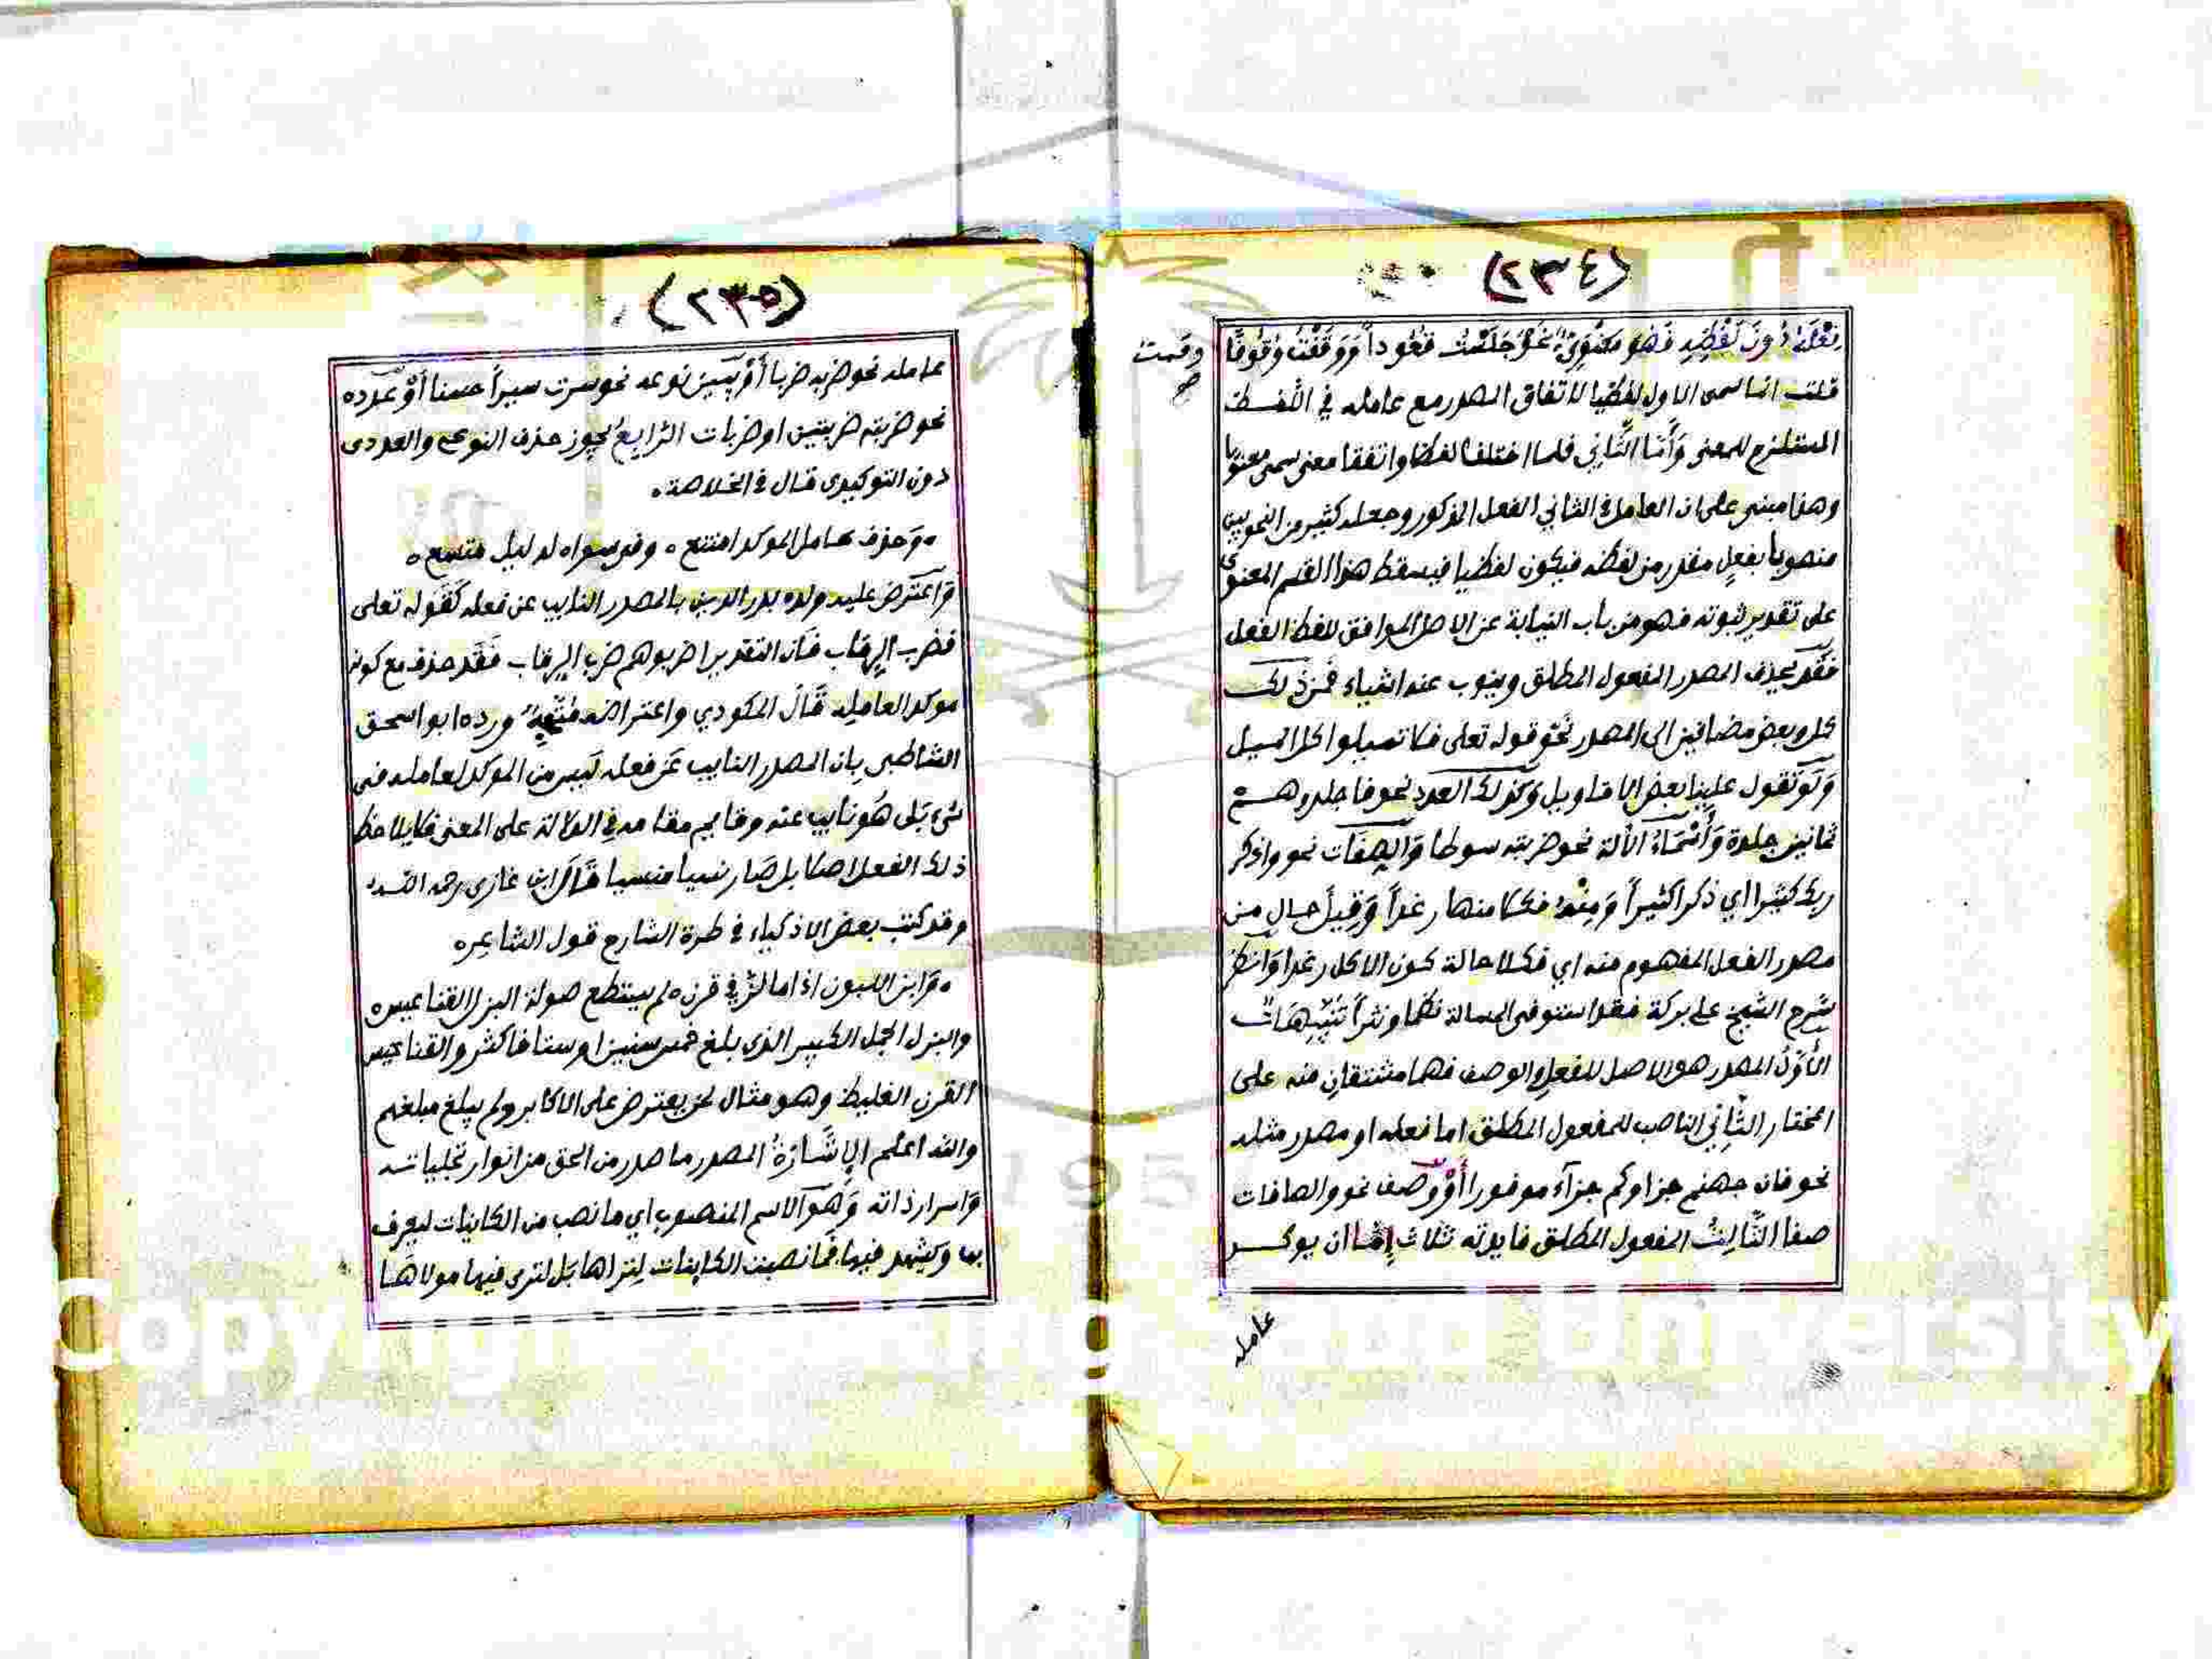 (٢٣٤)
فعله دون لفظه فهو معنوي نحو جلست قعوداً ووقفت وقوفا
وقمت
صح
قلت انما سمى الاول لفظيا لاتفاق المصدر مع عامله في اللفظ
المستلزم للمعنى وأما الثاني فلما اختلفا لفظا واتفقا معنى سمى معنويا
وهذا مبنى على ان العامل في الثاني الفعل المذكور وجعله كثير من النحويين
منصوبا بفعل مقدر من لفظه فيكون لفظيا فيسقط هذا القسم المعنوى
على تقدير ثبوته فهو من باب النيابة عن الاصل الموافق للفظ الفعل
فقد يحذف المصدر المفعول المطلق وينوب عنه اشياء فمن ذلك
كل وبعض مضافين الى المصدر نحو قوله تعلى فلا تميلوا كل الميل
ولو تقول علينا بعض الاقاويل وكذلك العدد نحو فاجلدوهم
ثمانين جلدة وأسماء الآلة نحو ضربته سوطا والصفات نحو واذكر
ربك كثيرا اي ذكرا كثيراً ومنه فكلا منها رغداً وقيل حال من
مصدر الفعل المفهوم منه اي فكلا حالة كون الاكل رغدا وانظر
شرح الشيخ على بركة فقد استوفى المسالة نظما ونثراً تنبيهات
الأول المصدر هو الاصل للفعل والوصف فهما مشتقان منه على
المختار الثاني الناصب للمفعول المطلق اما فعله او مصدر مثله
نحو فان جهنم جزاوكم جزآء موفورا أو وصف نحو والصافات
صفا الثالث المفعول المطلق فايدته ثلاث إما ان يوكد
عامله
(٢٣٥)
عامله نحو ضربه ضربا أو يبين نوعه نحو سرت سيراً حسنا أو عدده
نحو ضربته ضربتين او ضربات الرابع يجوز حذف النوعى والعددى
دون التوكيدى قال في الخلاصة.
وحذف عامل الموكد امتنع ه وفي سواه لدليل متسع ه
واعترض عليه ولده بدر الدين بالمصدر النايب عن فعله كقوله تعلى
فضرب الرقاب فان التقدير اضربوهم ضرب الرقاب فقد حذف مع كونه
موكد العامله قال المكودي واعتراضه متجه ورده ابو اسحق
الشاطبى بان المصدر النايب عن فعله ليس من الموكد لعامله فى
شىء بل هو نايب عنه وقايم مقامه في الدلالة على المعنى فلا يلاحظ
ذلك الفعل اصلا بل صار نسيا منسيا قال ابن غازى رحمه الله
وقد كتب بعض الاذكياء في طرة الشارح قول الشاعر ه
وابن اللبون اذا ما لز في قرن ه لم يستطع صولة البزل القناعيس ه
والبزل الجمل الكبير الذى بلغ خمس سنين او ستا فاكثر والقناعيس
القرن الغليظ وهو مثال لمن يعترض على الاكابر ولم يبلغ مبلغهم
والله اعلم الإشارة المصدر ما صدر من الحق من انوار تجلياته
واسرار ذاته وهو الاسم المنصوب اي ما نصب من الكاينات ليعرف
بها ويشهد فيها فما نصبت الكاينات لتراها بل لترى فيها مولاها
Copyright © King Saud University
195